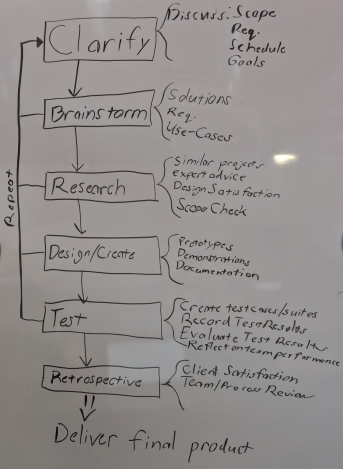 Clarify
Discuss: Scope
Req.
Schedule
Goals
Brainstorm
Solutions
Req.
Use-Cases
Research
Similar projects
expert advice
Design Satisfaction
Scope Check
Design/Create
Prototypes
Demonstrations
Documentation
Test
Create testcases/suites
Record Test Results
Evaluate Test Results
Reflect on team performance
Repeat
Retrospective
Client Satisfaction
Team/Process Review
Deliver final product